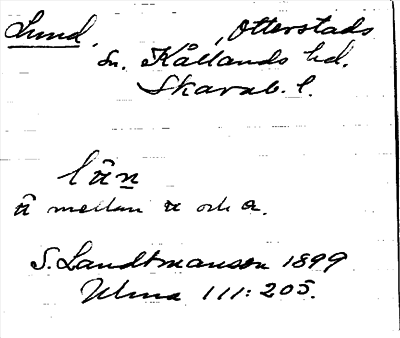 Lund, Otterstads
sn. Kållands hd.
Skarab. l.
län
ä mellan a och a.
S. Landtmanson 1899
Ulma 111:205.